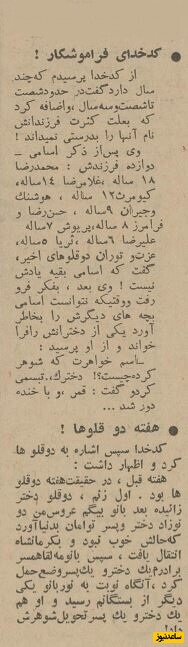 ● کدخدای فراموشکار !
از کدخدا پرسیدم که چند
سال دارد گفت در حدود شصت
تا شصت و سه سال ، و اضافه کرد
که بعلت کثرت فرزندانش
نام آنها را بدرستی نمیداند !
وی پس از ذکر اسامی
دوازده فرزندش : محمدرضا
۱۸ ساله ، غلامرضا ۱۴ ساله ،
کیومرث ۱۲ ساله ، هوشنگ
وجیران ۹ ساله ، حسن رضا و
فرامرز ۸ ساله ، پریوش ۷ ساله
علیرضا ۶ ساله ، ثریا ۵ ساله ،
عزت و توران دوقلوهای اخیر،
گفت که اسامی بقیه یادش
نیست ! وی بعد ، بفکر فرو
رفت و وقتیکه نتوانست اسامی
بچه های دیگرش را بخاطر
آورد یکی از دخترانش را فرا
خواند و از او پرسید :
ـ اسم خواهرت که شوهر
کرده چیست ؟! دخترک ، تبسمی
کرد و گفت : قمر ، و با خنده
دور شد ...
● هفته دو قلوها !
کدخدا سپس اشاره به دوقلو ها
کرد و اظهار داشت :
هفته قبل ، در حقیقت هفته دوقلو
ها بود . اول زنم ، دوقلو دختر
زائیده بعد بانو بیگم عروس من دو
نوزاد دختر و پسر توامان بدنیا آورد
که حالش خوب نبود و بکرمانشاه
انتقال یافت ، سپس بانو مه لقا همسر
برادرم یک دختر و یک پسر وضع حمل
کرد ، آنگاه نوبت به نور بانو یکی
دیگر از بستگانم رسید و او هم
یک دختر و یک پسر تحویل شوهرش
داد!